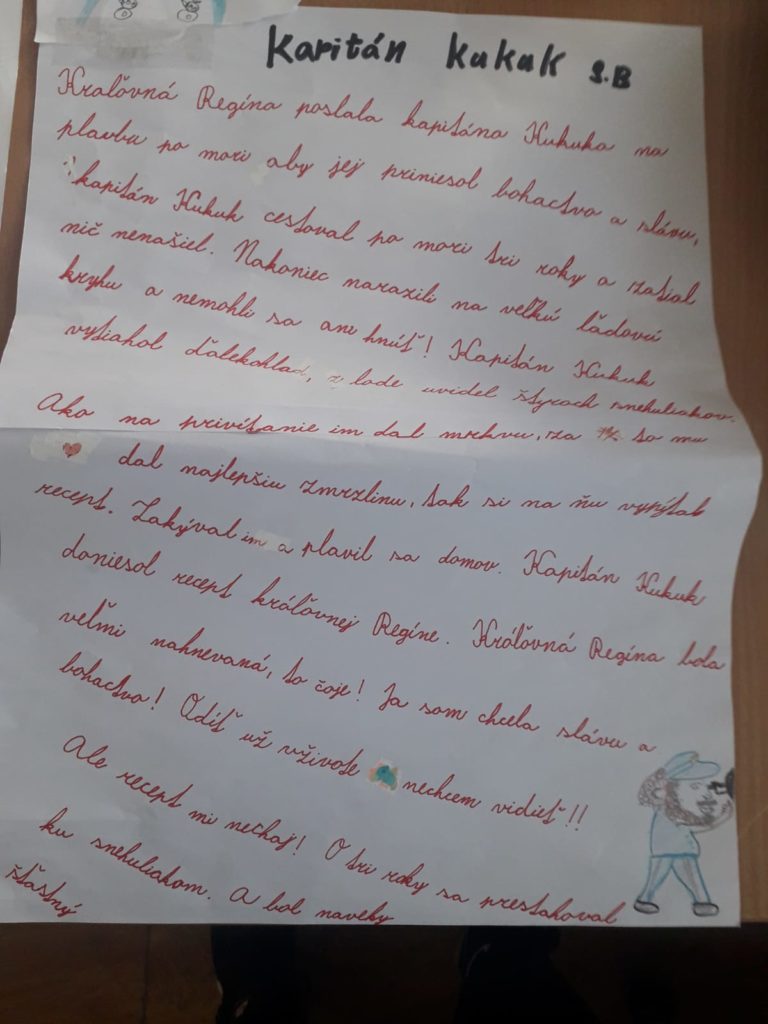 Kapitán Kukuk 2.B
Kraľovná Regína poslala kapitána Kukuka na
plavbu po mori aby jej priniesol bohactvo a slávu,
kapitán Kukuk cestoval po mori tri roky a zatial
nič nenašiel. Nakoniec narazili na veľkú ľadovú
kryhu a nemohli sa ani hnúť! Kapitán Kukuk
vytiahol ďalekohlad, z lode uvidel štyroch snehuliakov.
Ako na privítanie im dal mrkvu, za to mu
dal najlepšiu zmrzlinu, tak si na ňu vypýtal
recept. Zakýval im a plavil sa domov. Kapitán Kukuk
doniesol recept kráľovnej Regíne. Kráľovná Regína bola
veľmi nahnevaná, to čoje! Ja som chcela slávu a
bohactvo! Odíť už vživote nechcem vidieť!!
Ale recept mi nechaj! O tri roky sa prestahoval
ku snehuliakom. A bol naveky
šťastný